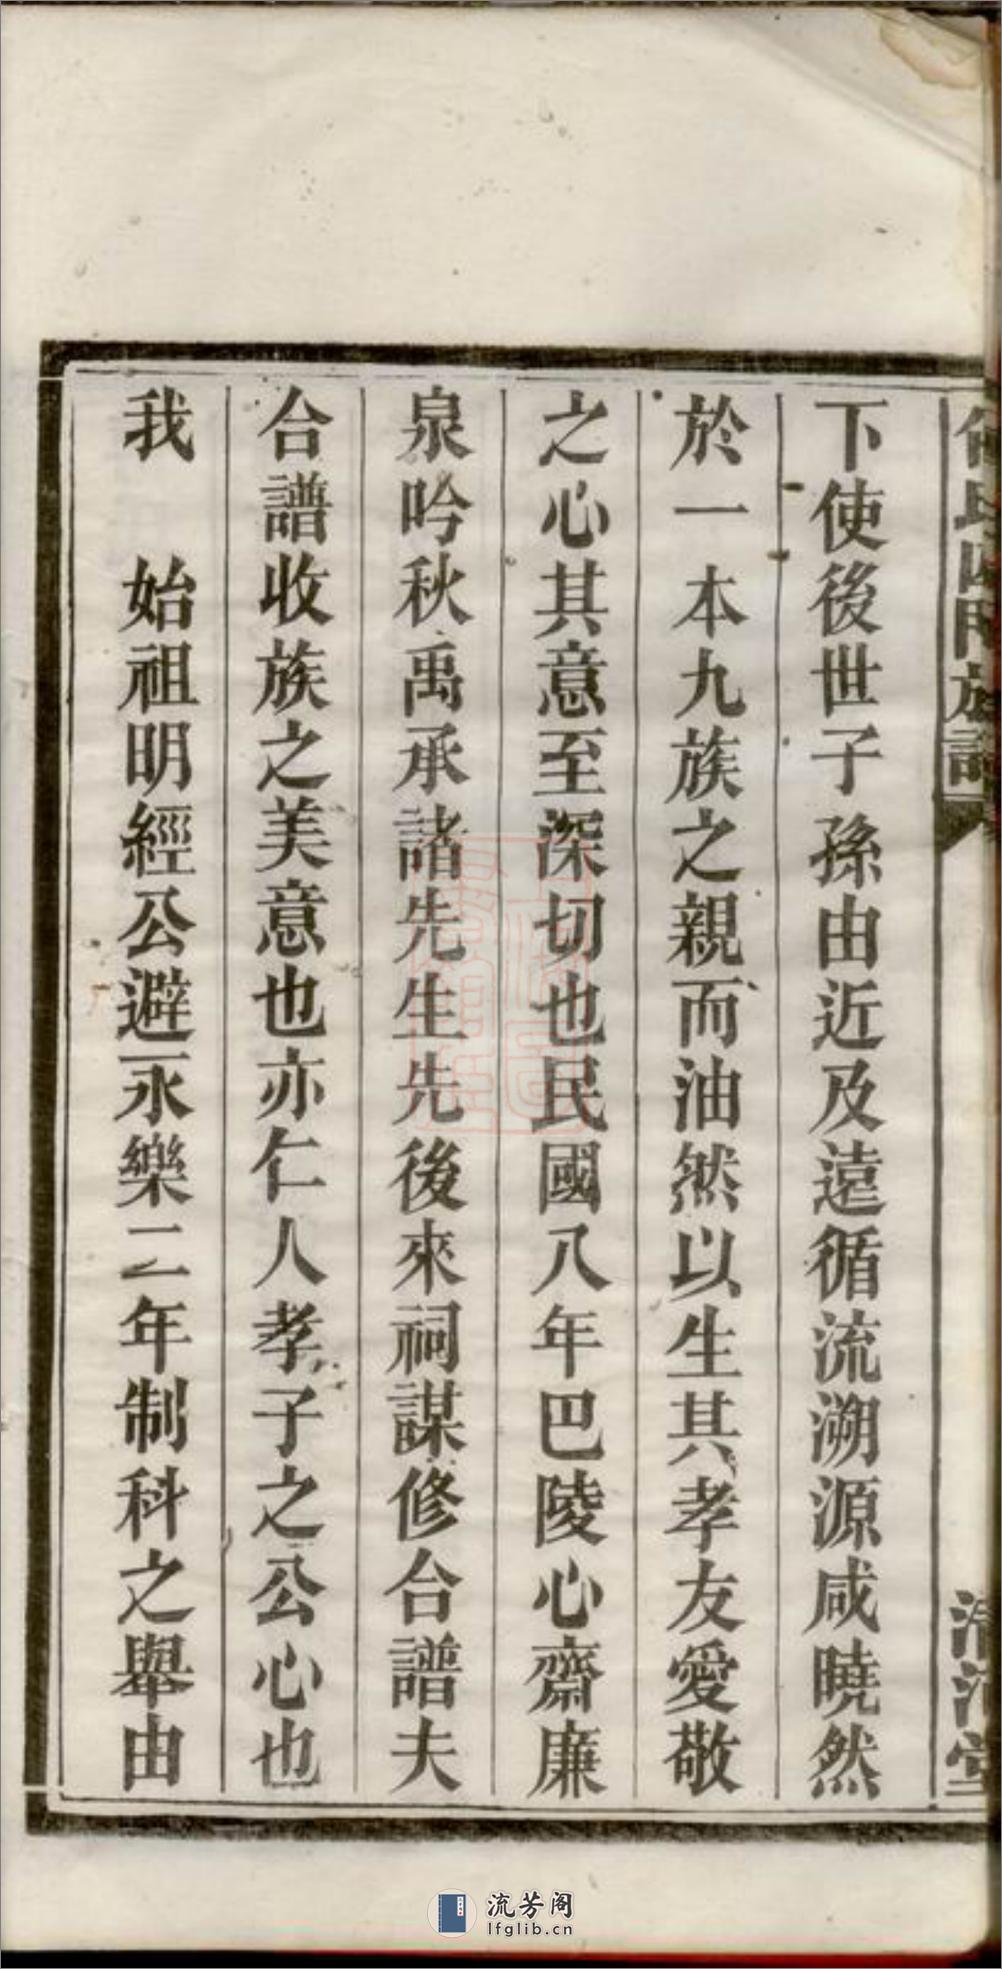 氏四房族譜
下使後世子孫由近及遠循流溯源咸曉然
於一本九族之親而油然以生其孝友愛敬
之心其意至深切也民國八年巴陵心齋廉
泉吟秋禹承諸先生先後來祠謀修合譜夫
合譜收族之美意也亦仁人孝子之公心也
我 始祖明經公避永樂二年制科之舉由
流芳阁
lfglib.cn